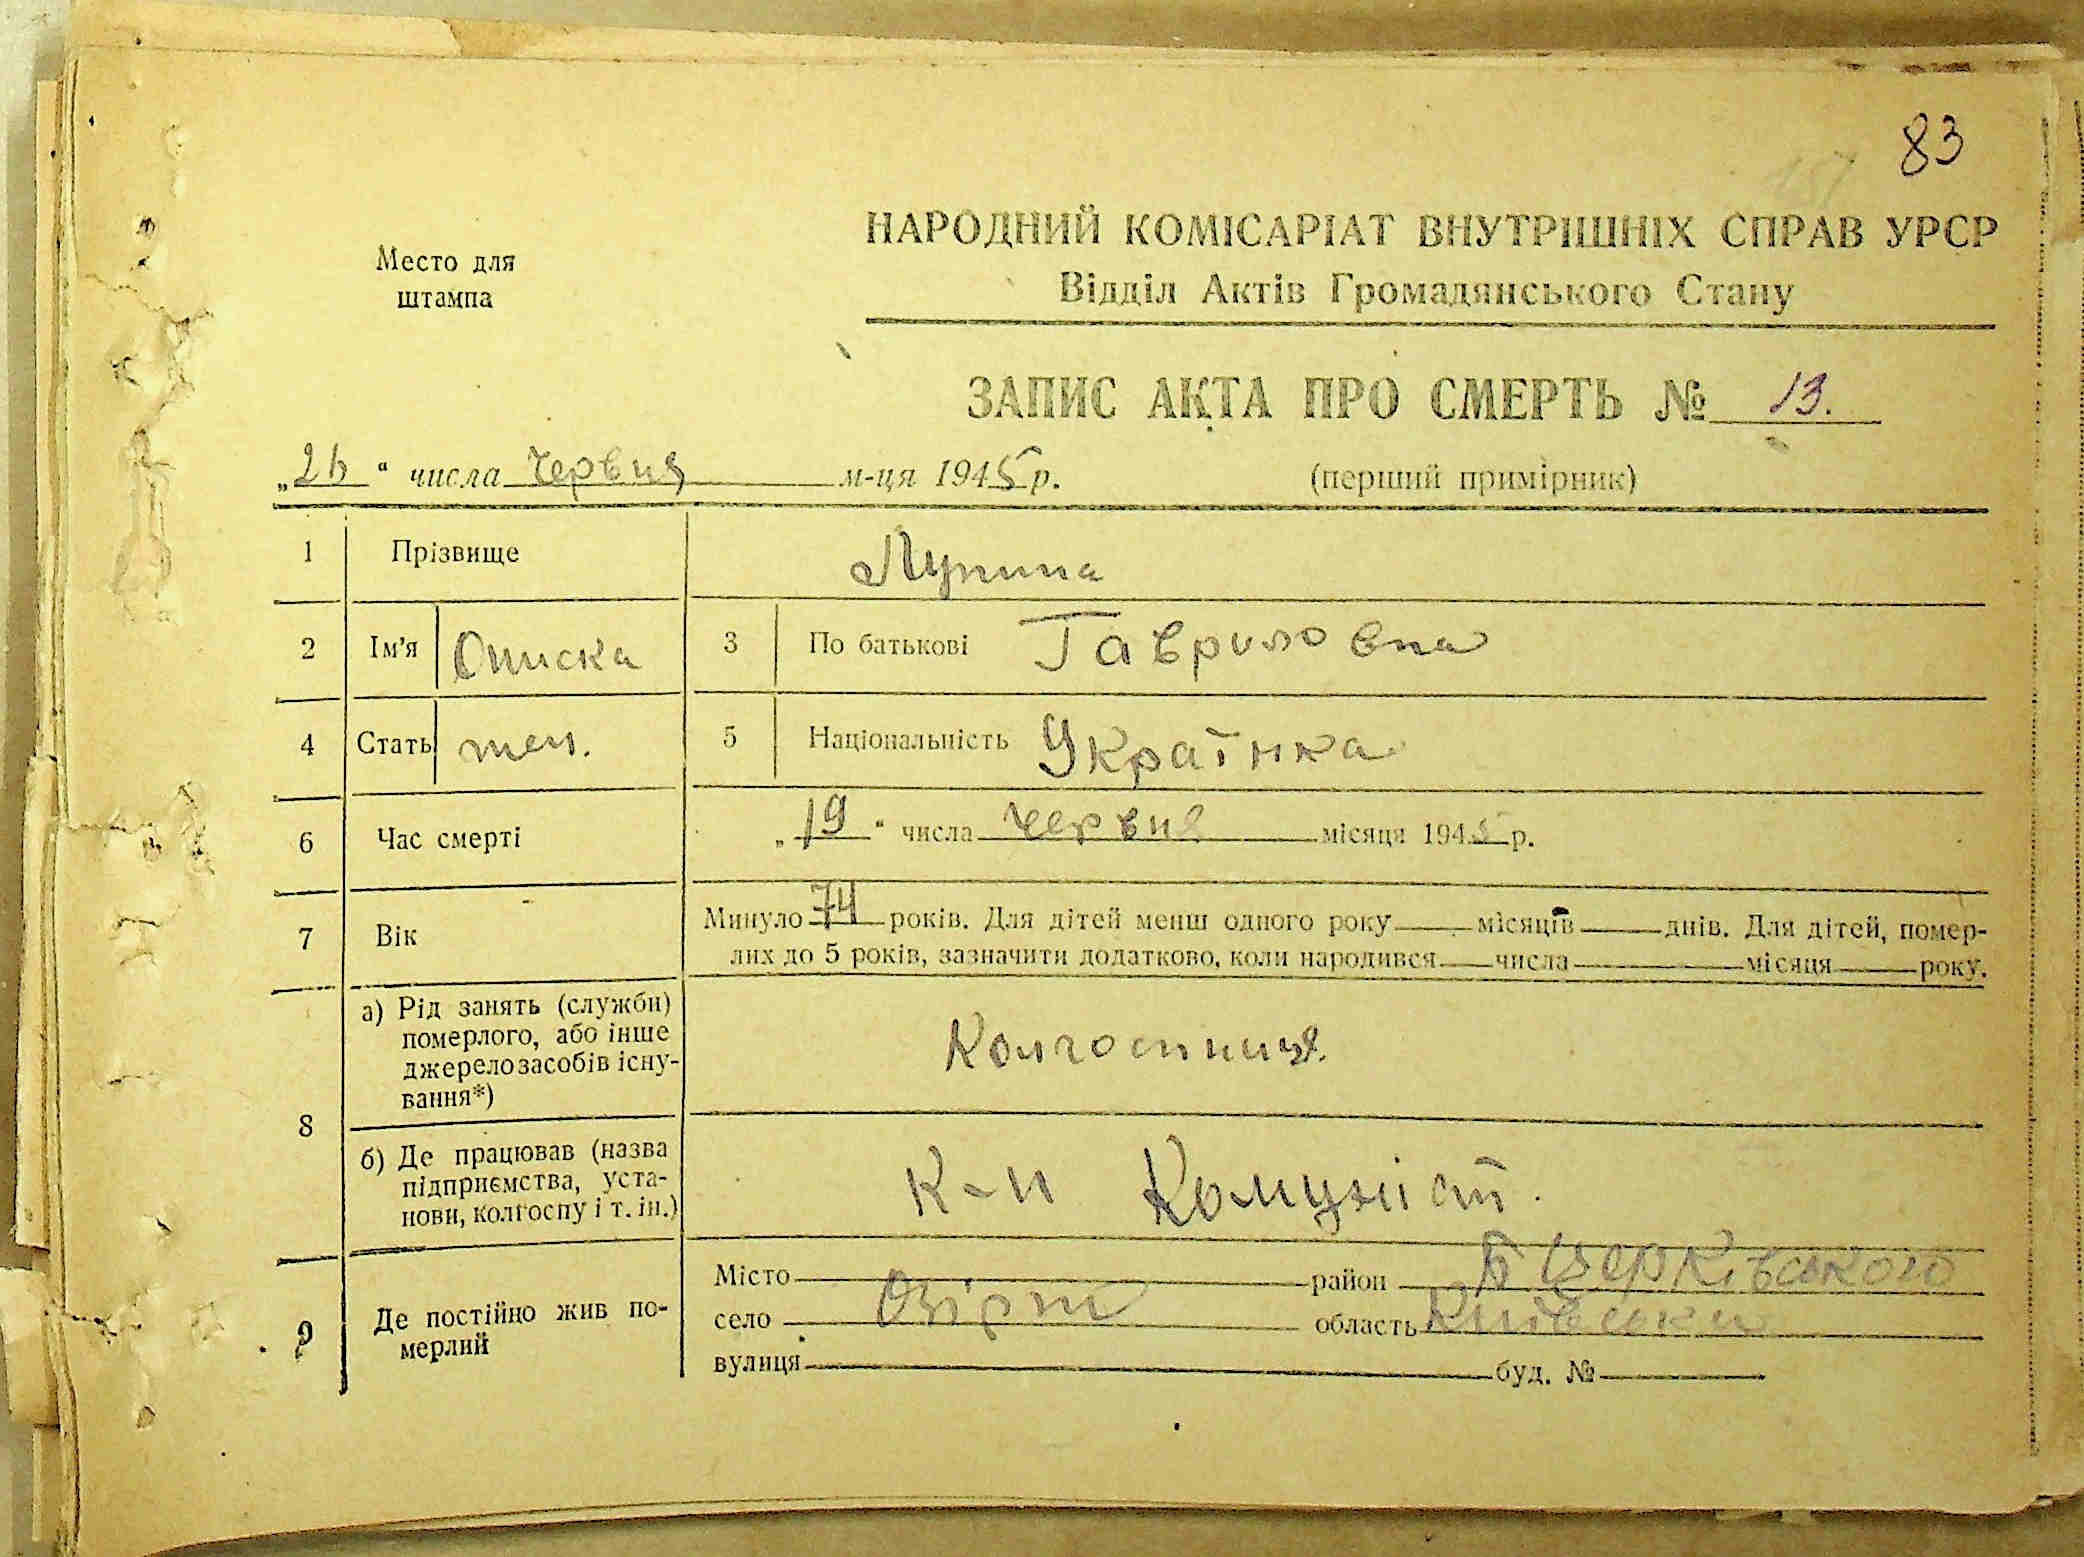 83
Место для
штампа
НАРОДНИЙ КОМІСАРІАТ ВНУТРІШНІХ СПРАВ УРСР
Відділ Актів Громадянського Стану
ЗАПИС АКТА ПРО СМЕРТЬ № 13.
„26" числа червня м-ця 1945 р. (перший примірник)
1 Прізвище Лупина
2 Ім'я Описка 3 По батькові Гавриловна
4 Стать жен. 5 Національність Українка
6 Час смерті „19" числа червня місяця 1945 р.
7 Вік Минуло 74 років. Для дітей менш одного року місяців днів. Для дітей, помер-
лих до 5 років, зазначити додатково, коли народився числа місяця року.
8 а) Рід занять (служби)
померлого, або інше
джерело засобів існу-
вання*) Колгоспниця.
б) Де працював (назва
підприємства, уста-
нови, колгоспу і т. ін.) К-п Комуніст.
9 Де постійно жив по-
мерлий
Місто район Б Церківського
село Озірн область Київська
вулиця буд. №